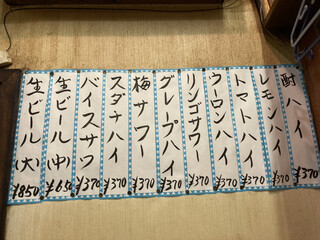 酎ハイ ¥370
レモンハイ ¥370
トマトハイ ¥370
ウーロンハイ ¥370
リンゴサワー ¥370
グレープハイ ¥370
梅サワー ¥370
スダチハイ ¥370
バイスサワ ¥370
生ビール(中) ¥650
生ビール(大) ¥850